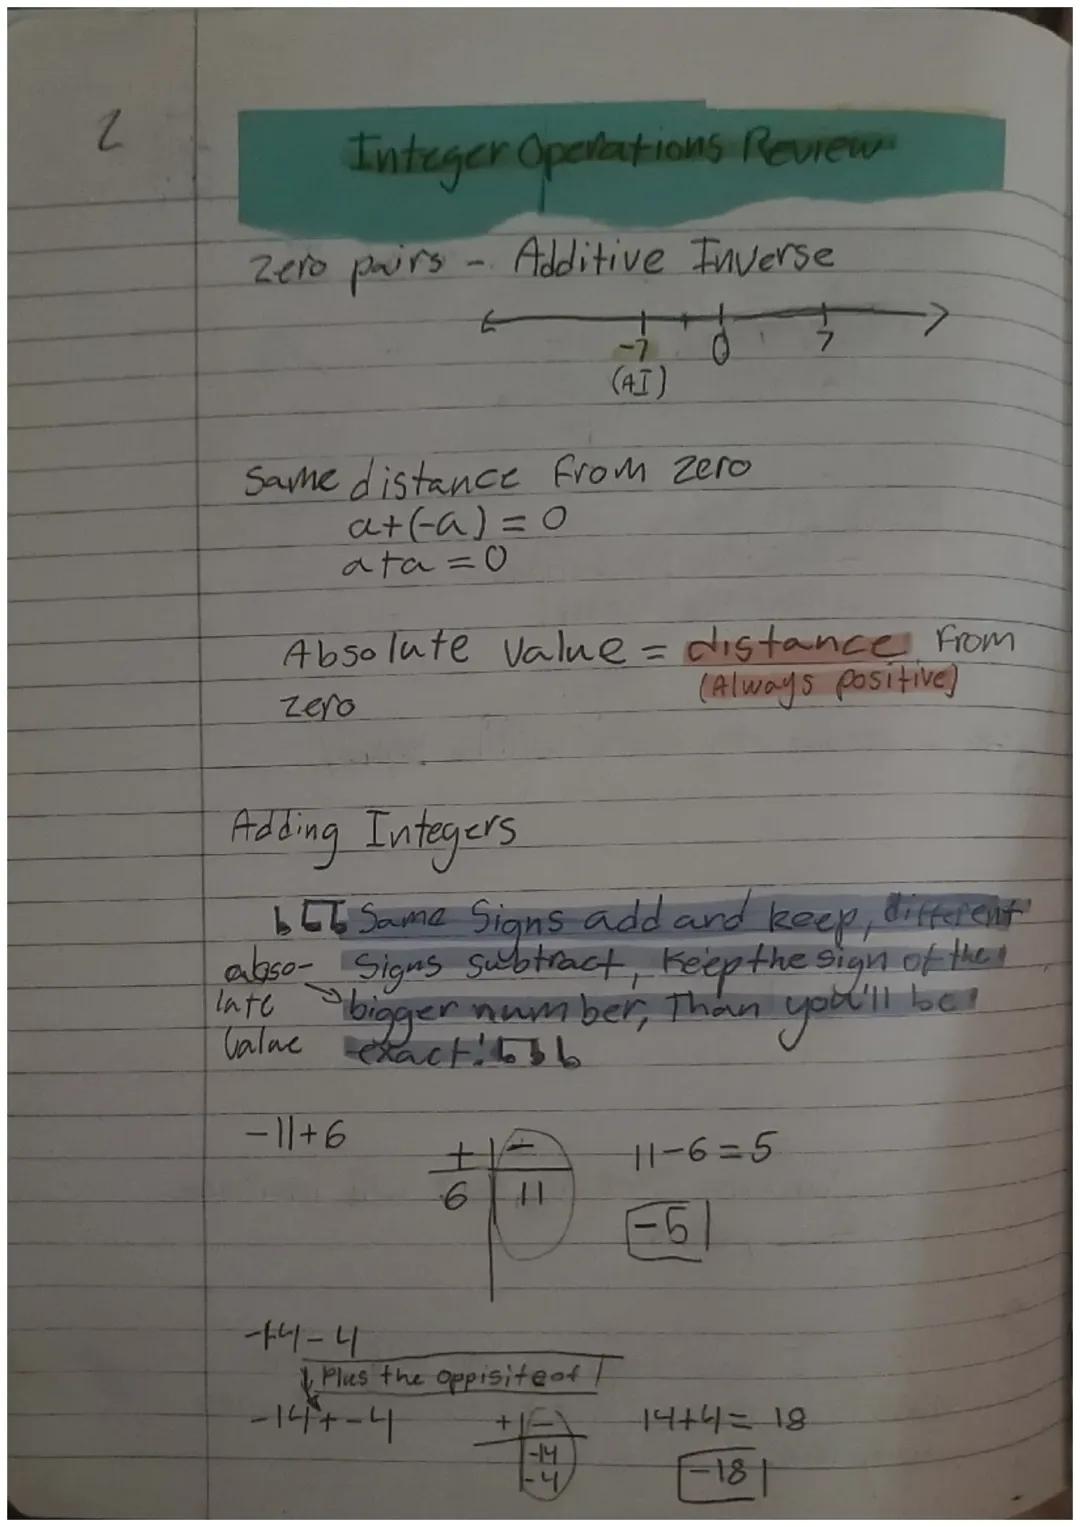 2
Integer Operations Review
Zero pairs - Additive Inverse
-7 0 7
(AI)
Same distance from zero
a+(-a) = 0
a+a = 0
Absolute value = distance from
(Always positive)
zero
Adding Integers
Same Signs add and keep, different
abso- Signs subtract, Keep the sign of the
late bigger number, Than you'll be
Value exact!
-11+6
+ -
6 11
11-6=5
-5
-14-4
Plus the oppisite of
-14+-4
+ -
-14
-4
14+4= 18
-18